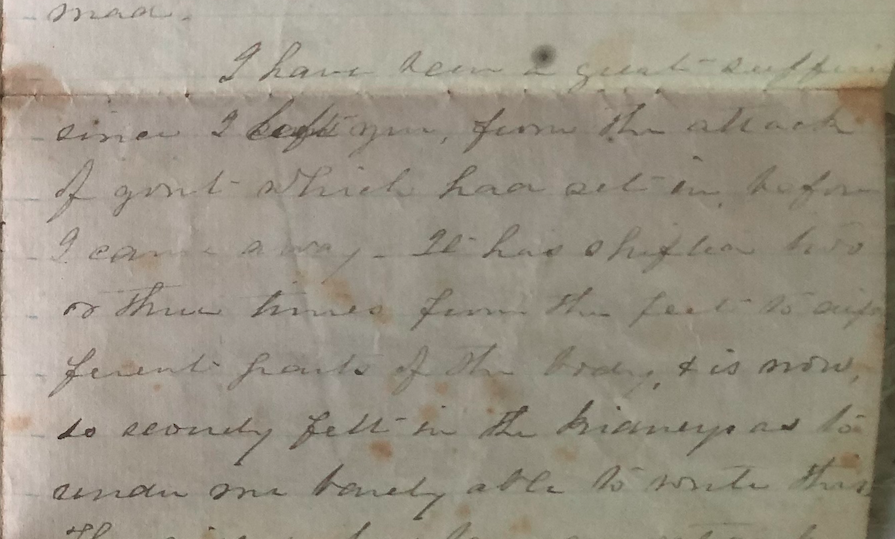 mad.
I have been a great suffer
since I left you, from the attack
of gout which had set in, before
I came away - It has shifted two
or three times from the feet to dif
ferent parts of the body, & is now,
so severely felt in the kidneys as to
render me barely able to write this